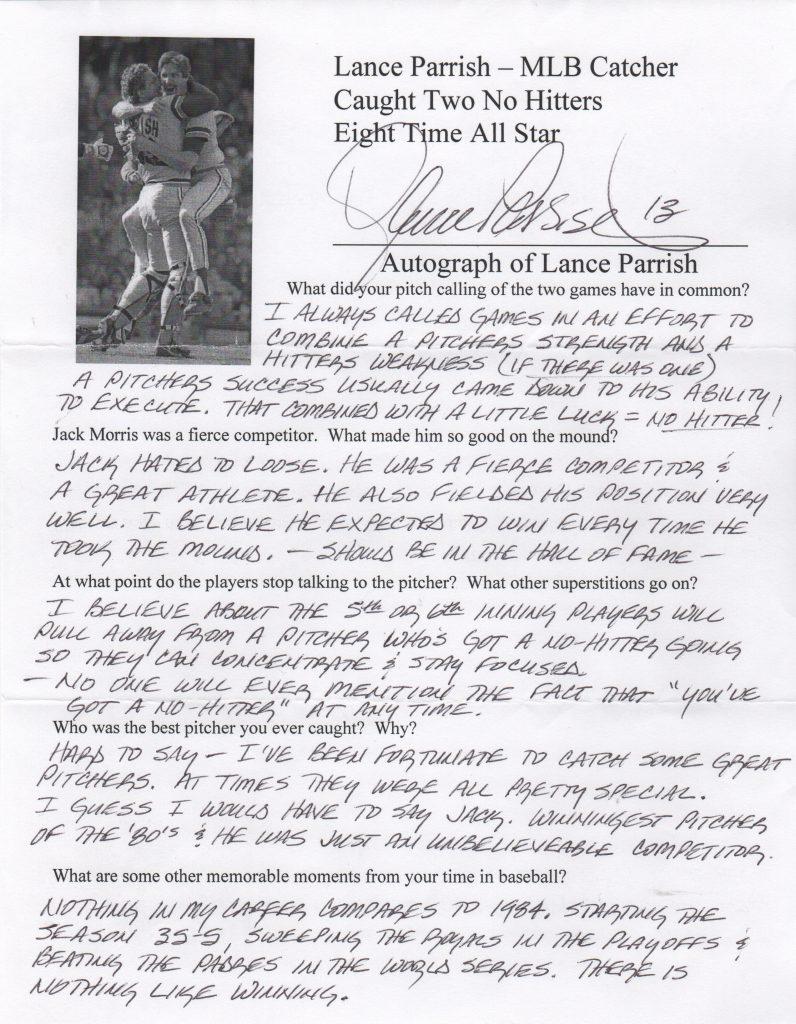 Lance Parrish – MLB Catcher
Caught Two No Hitters
Eight Time All Star
ISH
Lance Parrish 13
Autograph of Lance Parrish
What did your pitch calling of the two games have in common?
I ALWAYS CALLED GAMES IN AN EFFORT TO
COMBINE A PITCHERS STRENGTH AND A
HITTERS WEAKNESS (IF THERE WAS ONE)
A PITCHERS SUCCESS USUALLY CAME DOWN TO HIS ABILITY
TO EXECUTE. THAT COMBINED WITH A LITTLE LUCK = NO HITTER!
Jack Morris was a fierce competitor.  What made him so good on the mound?
JACK HATED TO LOOSE. HE WAS A FIERCE COMPETITOR &
A GREAT ATHLETE. HE ALSO FIELDED HIS POSITION VERY
WELL. I BELIEVE HE EXPECTED TO WIN EVERY TIME HE
TOOK THE MOUND. — SHOULD BE IN THE HALL OF FAME —
At what point do the players stop talking to the pitcher?  What other superstitions go on?
I BELIEVE ABOUT THE 5th OR 6th INNING PLAYERS WILL
PULL AWAY FROM A PITCHER WHO'S GOT A NO-HITTER GOING
SO THEY CAN CONCENTRATE & STAY FOCUSED
— NO ONE WILL EVER MENTION THE FACT THAT "YOU'VE
GOT A NO-HITTER" AT ANY TIME.
Who was the best pitcher you ever caught?  Why?
HARD TO SAY — I'VE BEEN FORTUNATE TO CATCH SOME GREAT
PITCHERS. AT TIMES THEY WERE ALL PRETTY SPECIAL.
I GUESS I WOULD HAVE TO SAY JACK. WINNINGEST PITCHER
OF THE '80'S & HE WAS JUST AN UNBELIEVEABLE COMPETITOR.
What are some other memorable moments from your time in baseball?
NOTHING IN MY CAREER COMPARES TO 1984. STARTING THE
SEASON 35-5, SWEEPING THE ROYALS IN THE PLAYOFFS &
BEATING THE PADRES IN THE WORLD SERIES. THERE IS
NOTHING LIKE WINNING.